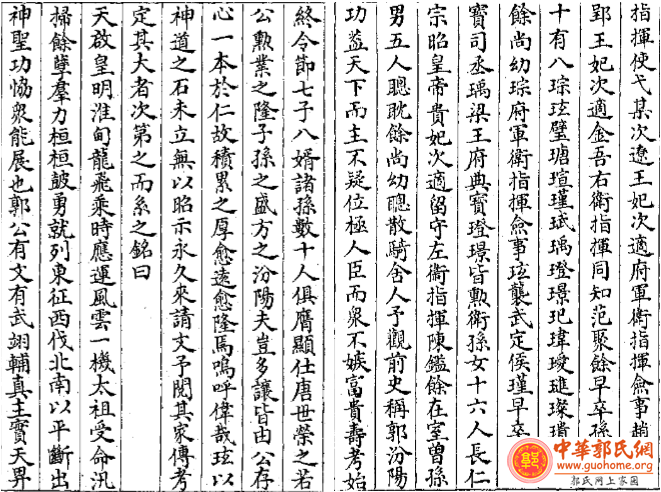 指揮使弋某次遼王妃次適府軍衛指揮僉事趙
郢王妃次適金吾右衛指揮同知范聚餘早卒孫
十有八琮玹璧瑭瑄瑾珷瑀璒璟玘瑋璦璡璨璿
餘尚幼琮府軍衛指揮僉事玹襲武定侯瑾早卒
寶司丞瑀梁王府典寶璒璟皆勳衛孫女十六人長仁
宗昭皇帝貴妃次適留守左衛指揮陳鑑餘在室曾孫
男五人聰耽餘尚幼聰散騎舍人予觀前史稱郭汾陽
功葢天下而主不疑位極人臣而衆不嫉富貴壽考始
終令節七子八婿諸孫數十人俱膺顯仕唐世榮之若
公勲業之隆子孫之盛方之汾陽夫豈多讓皆由公存
心一本於仁故積累之厚愈遠愈隆焉嗚呼偉哉玹以
神道之石未立無以昭示永久來請文予閱其家傳考
定其大者次第之而系之銘曰
天啟皇明淮甸龍飛乘時應運風雲一機太祖受命汛
掃餘孽羣力桓桓鼓勇就列東征西伐北南以平斷出
神聖功恊衆能展也郭公有文有武翊輔真主實天畀
中華郭氏網
www.guohome.org
郭氏网上家园